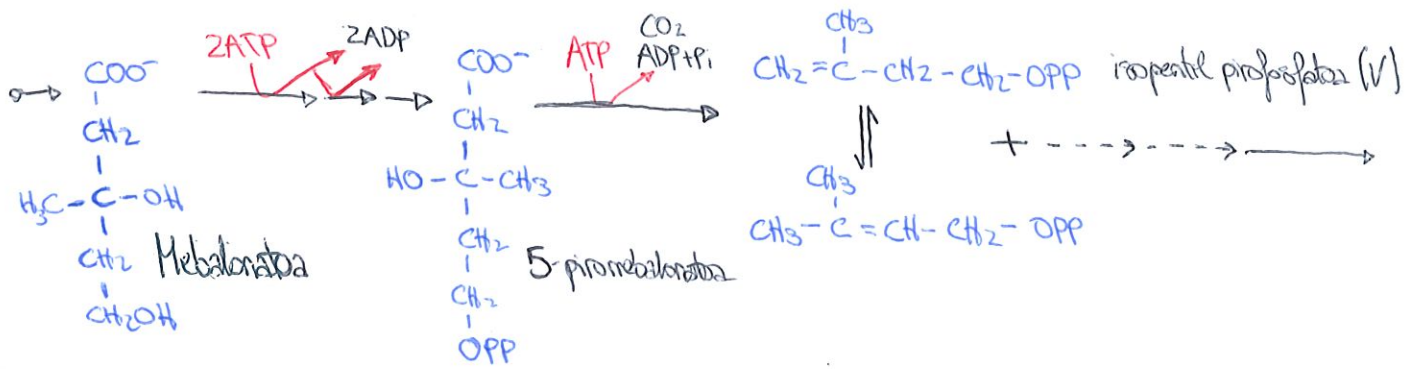 COO⁻
CH2
H3C-C-OH
CH2
CH2OH
Mebalonatoa
2ATP
2ADP
COO⁻
CH2
HO-C-CH3
CH2
CH2
OPP
5-piromebalonatoa
ATP
CO2
ADP+Pi
CH3
CH2=C-CH2-CH2-OPP
isopentil pirofosfatoa (V)
+
CH3
CH3-C=CH-CH2-OPP